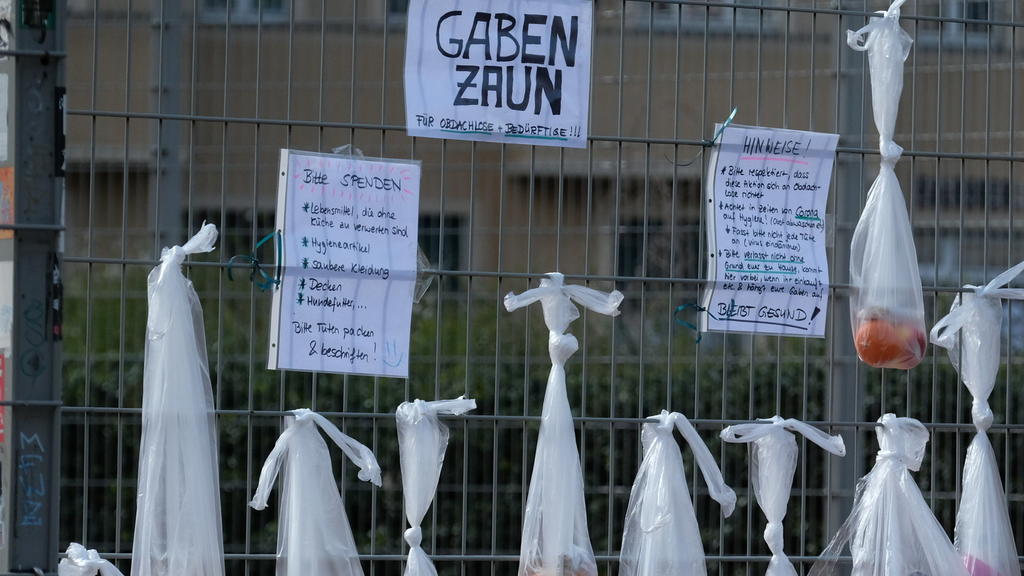 GABEN
ZAUN
FÜR OBDACHLOSE + BEDÜRFTIGE!!!
Bitte SPENDEN
* Lebensmittel, die ohne
Küche zu verwerten sind
* Hygieneartikel
* saubere Kleidung
* Decken
* Hundefutter,...
Bitte Tüten packen
& beschriften!
HINWEISE!
* Bitte respektiert, dass
diese Aktion sich an Obdach-
lose richtet
* Achtet in Zeiten von Corona
auf Hygiene!
↳ Fasst bitte nicht jede Tüte
an (Virus eindämmen)
* Bitte verlasst nicht ohne
Grund euer zu Hause, kommt
hier vorbei, wenn ihr einkauft
etc. & hängt eure Gaben auf
BLEIBT GESUND!